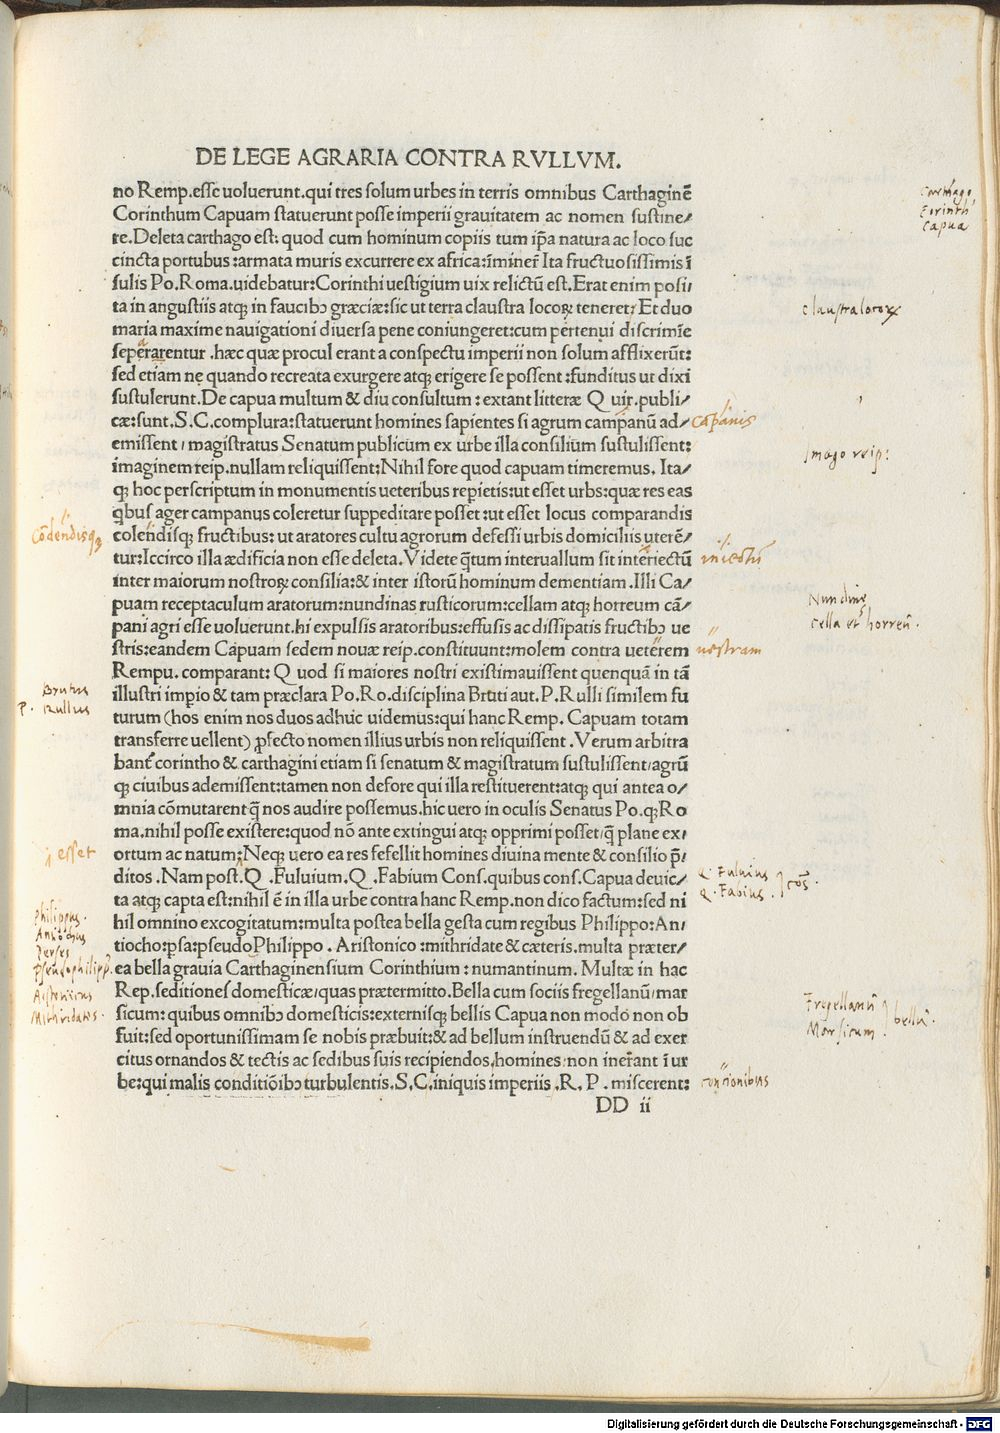 DE LEGE AGRARIA CONTRA RVLLVM.
no Remp.esse uoluerunt.qui tres solum urbes in terris omnibus Carthaginē
Corinthum Capuam statuerunt posse imperii grauitatem ac nomen sustine/
re.Deleta carthago est: quod cum hominum copiis tum ip̄a natura ac loco suc
cincta portubus:armata muris excurrere ex africa:īminer̄ Ita fructuosissimis ī
sulis Po.Roma.uidebatur:Corinthi uestigium uix relictū est.Erat enim posi/
ta in angustiis atq; in faucibꝰ græciæ:sic ut terra claustra locoꝝ teneret: Et duo
maria maxime nauigationi diuersa pene coniungeret:cum pertenui discrimīe
seperarentur .hæc quæ procul erant a conspectu imperii non solum afflixerūt:
sed etiam ne quando recreata exurgere atq; erigere se possent :funditus ut dixi
sustulerunt.De capua multum & diu consultum : extant litteræ Q uir.publi/
cæ:sunt.S.C.complura:statuerunt homines sapientes si agrum campanū ad/
emissent / magistratus Senatum publicum ex urbe illa consilium sustulissent:
imaginem reip.nullam reliquissent:Nihil fore quod capuam timeremus. Ita/
q; hoc perscriptum in monumentis ueteribus reperietis:ut esset urbs:quæ res eas
q̄bus ager campanus coleretur suppeditare posset :ut esset locus comparandis
colendisq; fructibus: ut aratores cultu agrorum defessi urbis domiciliis uterē/
tur:Iccirco illa ædificia non esse deleta.Videte q̄tum interuallum sit interiectū
inter maiorum nostroꝝ consilia:& inter istorū hominum dementiam .Illi Ca/
puam receptaculum aratorum:nundinas rusticorum:cellam atq; horreum cā/
pani agri esse uoluerunt.hi expulsis aratoribus:effusis ac dissipatis fructibꝰ ue
stris:eandem Capuam sedem nouæ reip.constituunt:molem contra ueterem
Rempu. comparant: Q uod si maiores nostri existimauissent quenquā in tā
illustri imp̄io & tam præclara Po.Ro.disciplina Bruti aut.P.Rulli similem fu
turum (hos enim nos duos adhuc uidemus:qui hanc Remp. Capuam totam
transferre uellent) ꝓfecto nomen illius urbis non reliquissent .Verum arbitra
banť corintho & carthagini etiam si senatum & magistratum sustulissent/agrū
q; ciuibus ademissent:tamen non defore qui illa restituerent:atq; qui antea o/
mnia cōmutarent q̄ nos audire possemus.hic uero in oculis Senatus Po.q;Ro
ma.nihil posse existere:quod nō ante extingui atq; opprimi posset/q̄ plane ex/
ortum ac natum:Neq; uero ea res fefellit homines diuina mente & consilio p̄/
ditos .Nam post.Q .Fuluium.Q .Fabium Cons.quibus cons.Capua deuic/
ta atq; capta est:nihil ē in illa urbe contra hanc Remp.non dico factum:sed ni
hil omnino excogitatum:multa postea bella gesta cum regibus Philippo:An/
tiocho:ꝑsa:pseudoPhilippo . Aristonico :mithridate & cæteris.multa præter/
ea bella grauia Carthaginensium Corinthium : numantinum. Multæ in hac
Rep.seditiones domesticæ/quas prætermitto.Bella cum sociis fregellanū/mar
sicum: quibus omnibꝰ domesticis:externisq; bellis Capua non modo non ob
fuit:sed oportunissimam se nobis præbuit:& ad bellum instruendū & ad exer
citus ornandos & tectis ac sedibus suis recipiendos,homines non inerant ī ur
be:qui malis conditiōibꝰ turbulentis.S.C.iniquis imperiis .R. P. miscerent:
DD ii
Carthago
Corinth
Capua
claustra locoꝝ
campanis
Imago reip:
Cōdendisq;
iniectū
Nundine
Cella et horreū.
uestram
Brutus
P. Rullus
esset
Q. Fuluius
Q. Fabius . cōs.
Philippus.
Antiochus
Perses
Pseudophilipp.
Aristonicus
Mithridates.
Fregellanū
Marsicum bellū.
concionibus
Digitalisierung gefördert durch die Deutsche Forschungsgemeinschaft - DFG